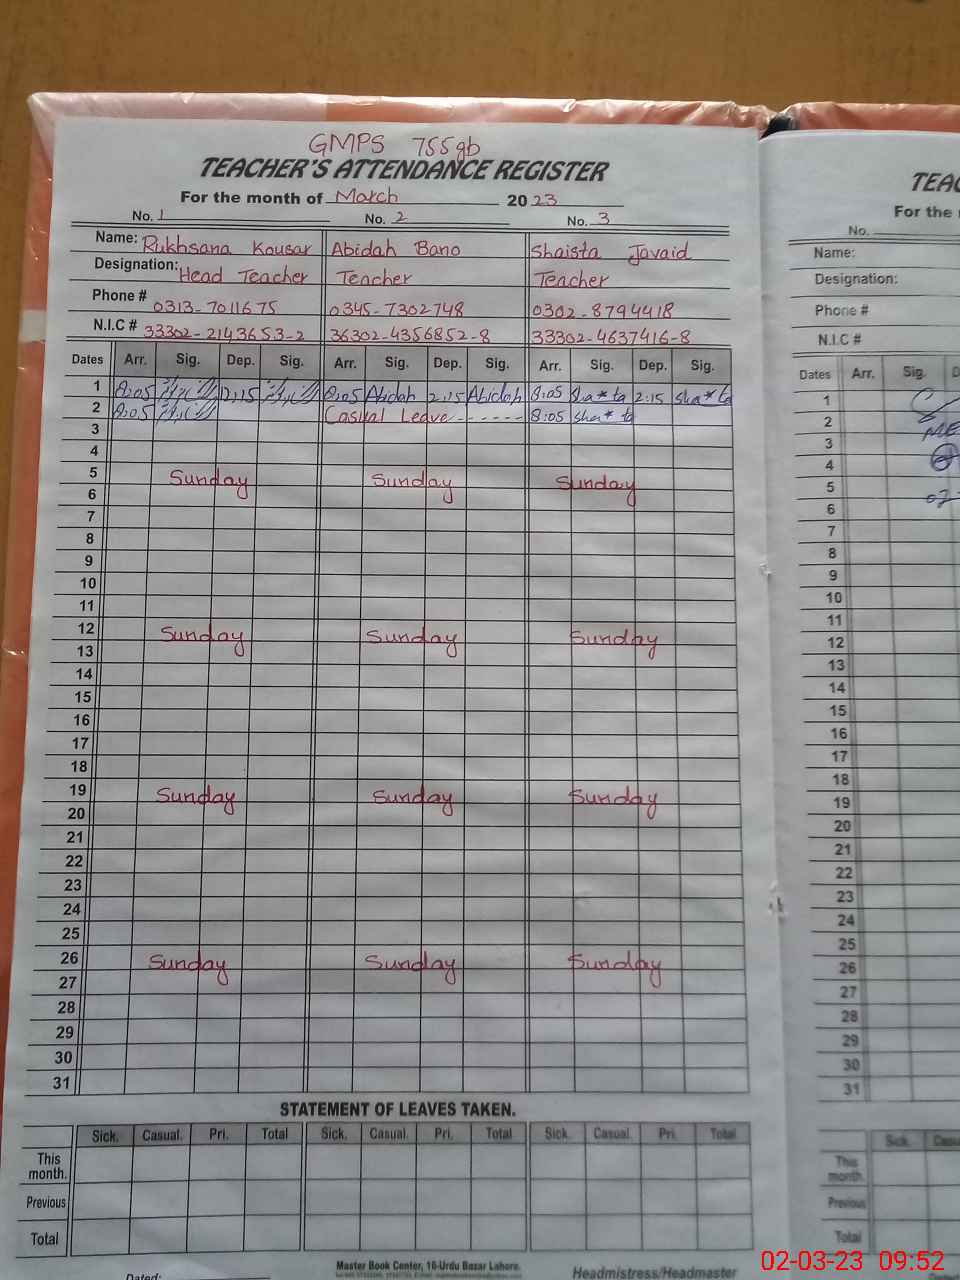 GMPS 755gb
TEACHER'S ATTENDANCE REGISTER
For the month of March 2023
No. 1 No. 2 No. 3
Name: Rukhsana Kousar Abidah Bano Shaista Javaid
Designation: Head Teacher Teacher Teacher
Phone # 0313-7011675 0345-7302748 0302-8794418
N.I.C # 33302-2143653-2 36302-4356852-8 33302-4637416-8
Dates Arr. Sig. Dep. Sig. Arr. Sig. Dep. Sig. Arr. Sig. Dep. Sig.
1 8:05 2:15 8:05 Abidah 2:15 Abidah 8:05 Sha*ta 2:15 Sha*ta
2 8:05 Casual Leave ------ 8:05 Sha*ta
3
4
5 Sunday Sunday Sunday
6
7
8
9
10
11
12 Sunday Sunday Sunday
13
14
15
16
17
18
19 Sunday Sunday Sunday
20
21
22
23
24
25
26 Sunday Sunday Sunday
27
28
29
30
31
STATEMENT OF LEAVES TAKEN.
Sick. Casual. Pri. Total Sick. Casual. Pri. Total Sick. Casual. Pri. Total
This
month.
Previous
Total
Master Book Center, 16-Urdu Bazar Lahore.
Dated: Headmistress/Headmaster
TEAC
For the
No.
Name:
Designation:
Phone #
N.I.C #
Dates Arr. Sig. D
1
2
3
4
5
6
7
8
9
10
11
12
13
14
15
16
17
18
19
20
21
22
23
24
25
26
27
28
29
30
31
Sick. Casu
This
month.
Previous
Total
02-03-23 09:52